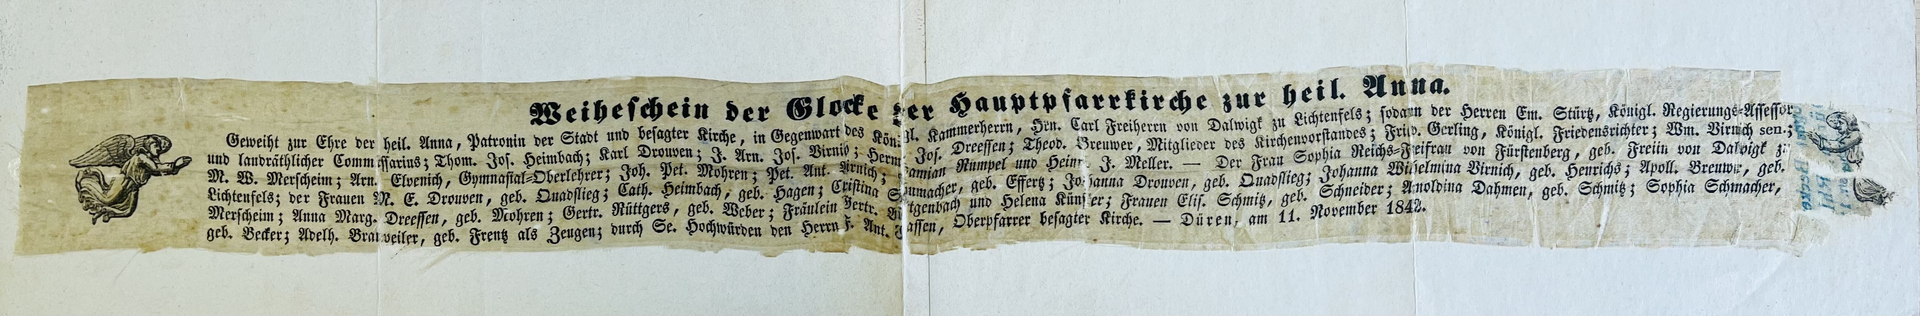 Weiheschein der Glocke der Hauptpfarrkirche zur heil. Anna.
Geweiht zur Ehre der heil. Anna, Patronin der Stadt und besagter Kirche, in Gegenwart des Königl. Kammerherrn, Hrn. Carl Freiherrn von Dalwigk zu Lichtenfels; sodann der Herren Em. Stürtz, Königl. Regierungs-Assessor
und landräthlicher Commissarius; Thom. Jos. Heimbach; Karl Drouven; J. Arn. Jos. Virnich; Herm. Jos. Dreessen; Theod. Breuwer, Mitglieder des Kirchenvorstandes; Fried. Gerling, Königl. Friedensrichter; Wm. Virnich sen.;
M. W. Merscheim; Arn. Elvenich, Gymnasial-Oberlehrer; Joh. Pet. Mohren; Pet. Ant. Virnich; Damian Rumpel und Heinr. J. Meller. — Der Frau Sophia Reichs-Freifrau von Fürstenberg, geb. Freiin von Dalwigk zu
Lichtenfels; der Frauen M. E. Drouven, geb. Quadflieg; Cath. Heimbach, geb. Hagen; Cristina Schumacher, geb. Effertz; Johanna Drouven, geb. Quadflieg; Johanna Wilhelmina Virnich, geb. Henrichs; Apoll. Breuwer, geb.
Merscheim; Anna Marg. Dreessen, geb. Mohren; Gertr. Rüttgers, geb. Weber; Fräulein Gertr. und Helena Künster; Frauen Elis. Schmitz, geb. Schneider; Arnoldina Dahmen, geb. Schmitz; Sophia Schmacher,
geb. Becker; Adelh. Bratweiler, geb. Frentz als Zeugen; durch Se. Hochwürden den Herrn F. Ant. Oberpfarrer besagter Kirche. — Düren, am 11. November 1842.